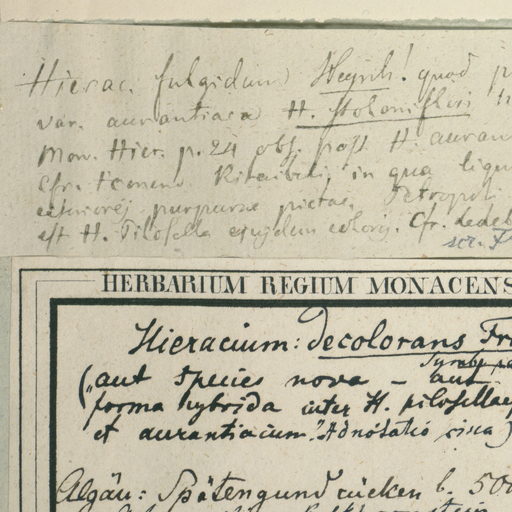 Hierac. fulgidum Heynh! quod p
var. aurantiaca H. stoloniflori
Mon. Hier. p. 24 obs. post H. auran
Cfr. icones Kitaibeli, in qua ligu
exteriores purpurae pictae. Petropoli
est H. Pilosella ejusdem coloris. Cfr. Ledeb
scr. F
HERBARIUM REGIUM MONACENS
Hieracium: decolorans Fr
("aut species nova – aut
forma hybrida inter H. pilosellae
et aurantiacum" Adnotatio
Algäu: Spätengundrücken b. 500